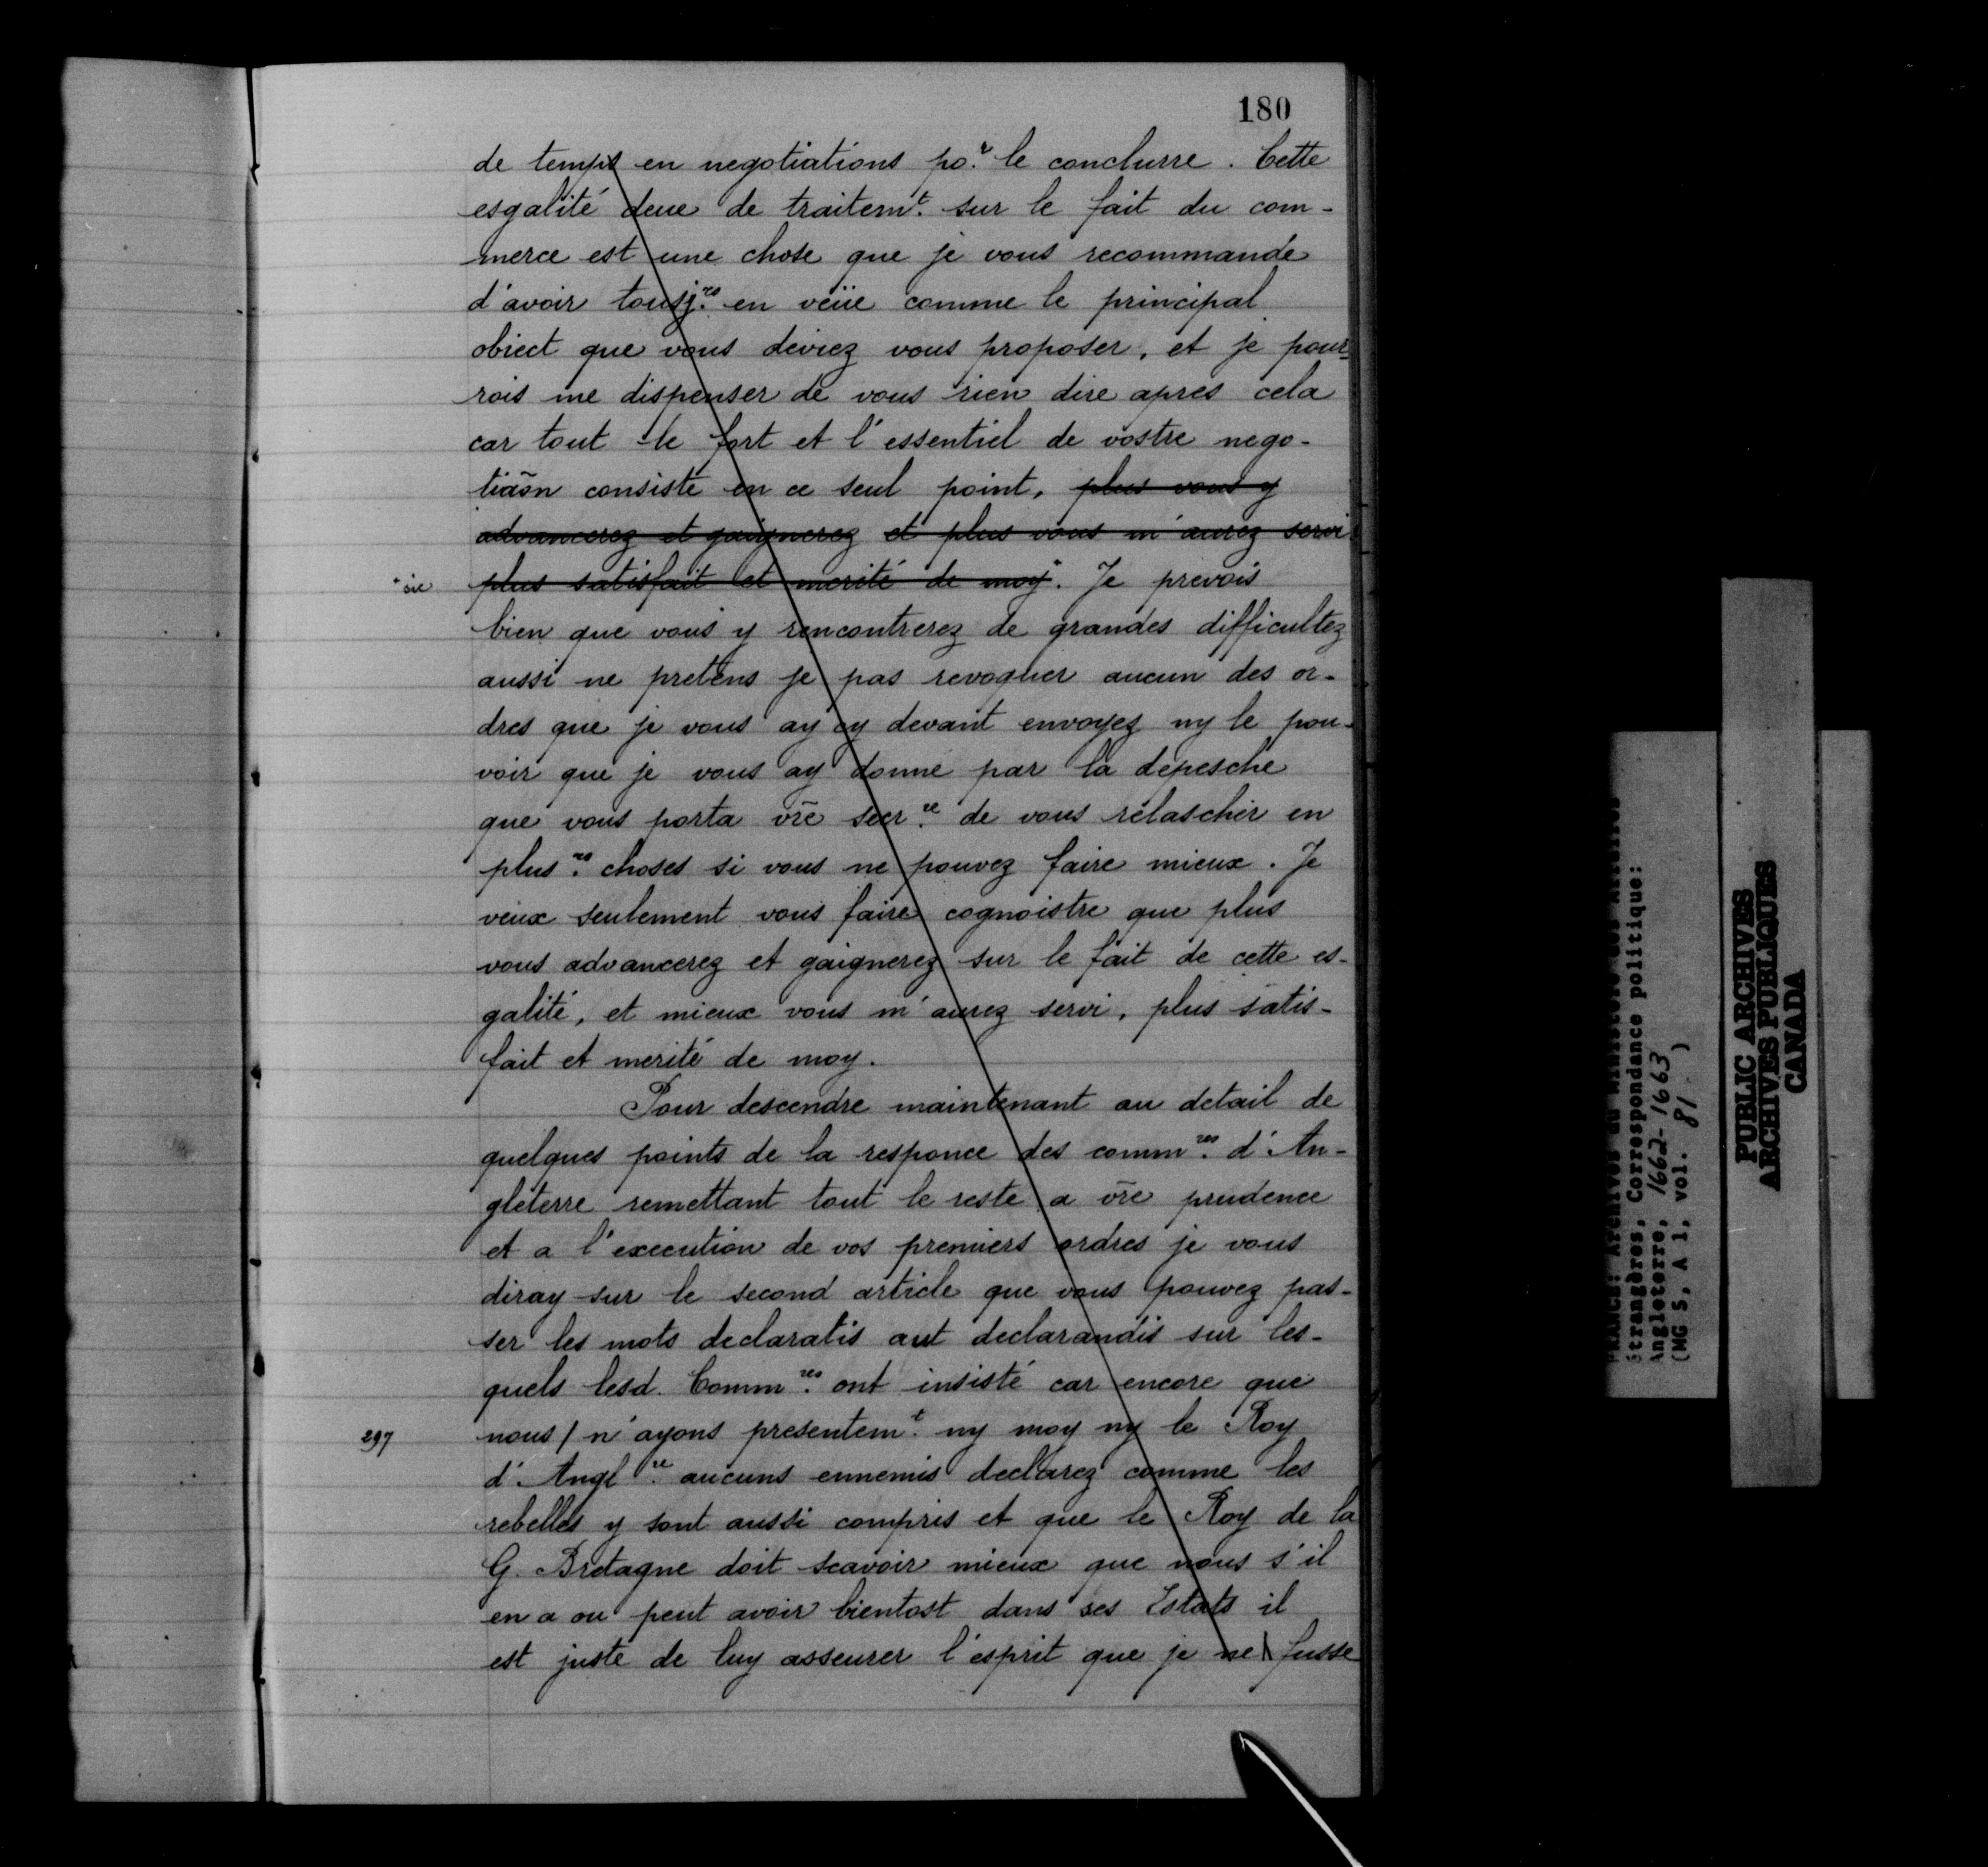 180
de temps en negotiations po.r le conclurre. Cette
esgalité deue de traitem.t sur le fait du com-
merce est une chose que je vous recommande
d'avoir tousj.rs en veüe comme le principal
obiect que vous devrez vous proposer, et je pour-
rois me dispenser de vous rien dire apres cela
car tout le fort et l'essentiel de vostre nego-
tiaõn consiste en ce seul point, plus vous y
advancerez et gaignerez et plus vous m'aurez servi
* sic plus satisfait et merité de moy*. Je prevois
bien que vous y rencontrerez de grandes difficultez
aussi ne pretens je pas revoquer aucun des or-
dres que je vous ay cy devant envoyez ny le pou-
voir que je vous ay donné par la depesche
que vous porta vr̃e secr.re de vous relascher en
plus.rs choses si vous ne pouvez faire mieux. Je
veux seulement vous faire cognoistre que plus
vous advancerez et gaignerez sur le fait de cette es-
galité, et mieux vous m'aurez servi, plus satis-
fait et merité de moy.
Pour descendre maintenant au detail de
quelques points de la responce des comm.res d'An-
gleterre remettant tout le reste a vr̃e prudence
et a l'execution de vos premiers ordres je vous
diray sur le second article que vous pouvez pas-
ser les mots declaratis aut declarandis sur les-
quels lesd. Comm.res ont insisté car encore que
297 nous / n'ayons presentem.t ny moy ny le Roy
d'Angl.re aucuns ennemis declarez comme les
rebelles y sont aussi compris et que le Roy de la
G. Bretagne doit scavoir mieux que nous s'il
en a ou peut avoir bientost dans ses Estats il
est juste de luy asseurer l'esprit que je ne fusse
Étrangères, Correspondance politique:
Angleterre, 1662-1663
(MG 5, A 1, vol. 81 )
PUBLIC ARCHIVES
ARCHIVES PUBLIQUES
CANADA